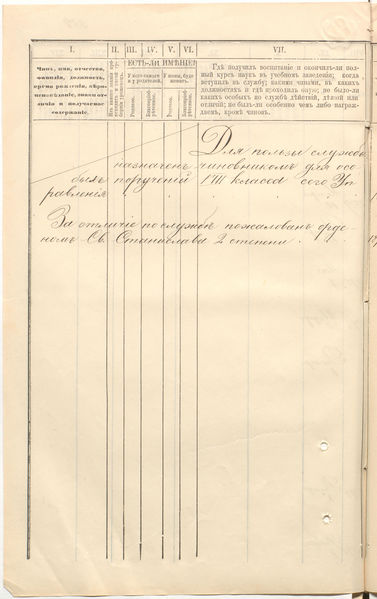 I. II. III. IV. V. VI. VII.
ЕСТЬ-ЛИ ИМѢНІЕ?
Чинъ, имя, отчество,
фамилія, должность,
время рожденія, вѣро-
исповѣданіе, знаки от-
личія и получаемое
содержаніе.
У него самаго
и у родителей.
У жены, буде
женатъ.
Родовое.
Благопріоб-
рѣтенное.
Родовое.
Благопріоб-
рѣтенное.
Гдѣ получилъ воспитаніе и окончилъ-ли пол-
ный курсъ наукъ въ учебномъ заведеніи; когда
вступилъ въ службу; какими чинами, въ какихъ
должностяхъ и гдѣ проходилъ оную; не было-ли
какихъ особыхъ по службѣ дѣяній, дѣлой или
отличій; не былъ-ли особенно чѣмъ либо награж-
даемъ, кромѣ чиновъ.
Для пользы службы
назначенъ чиновникомъ для осо-
быхъ порученій VIII класса сего Уп
равленія
За отличіе по службѣ пожалованъ орде-
номъ Св. Станислава 2 степени.